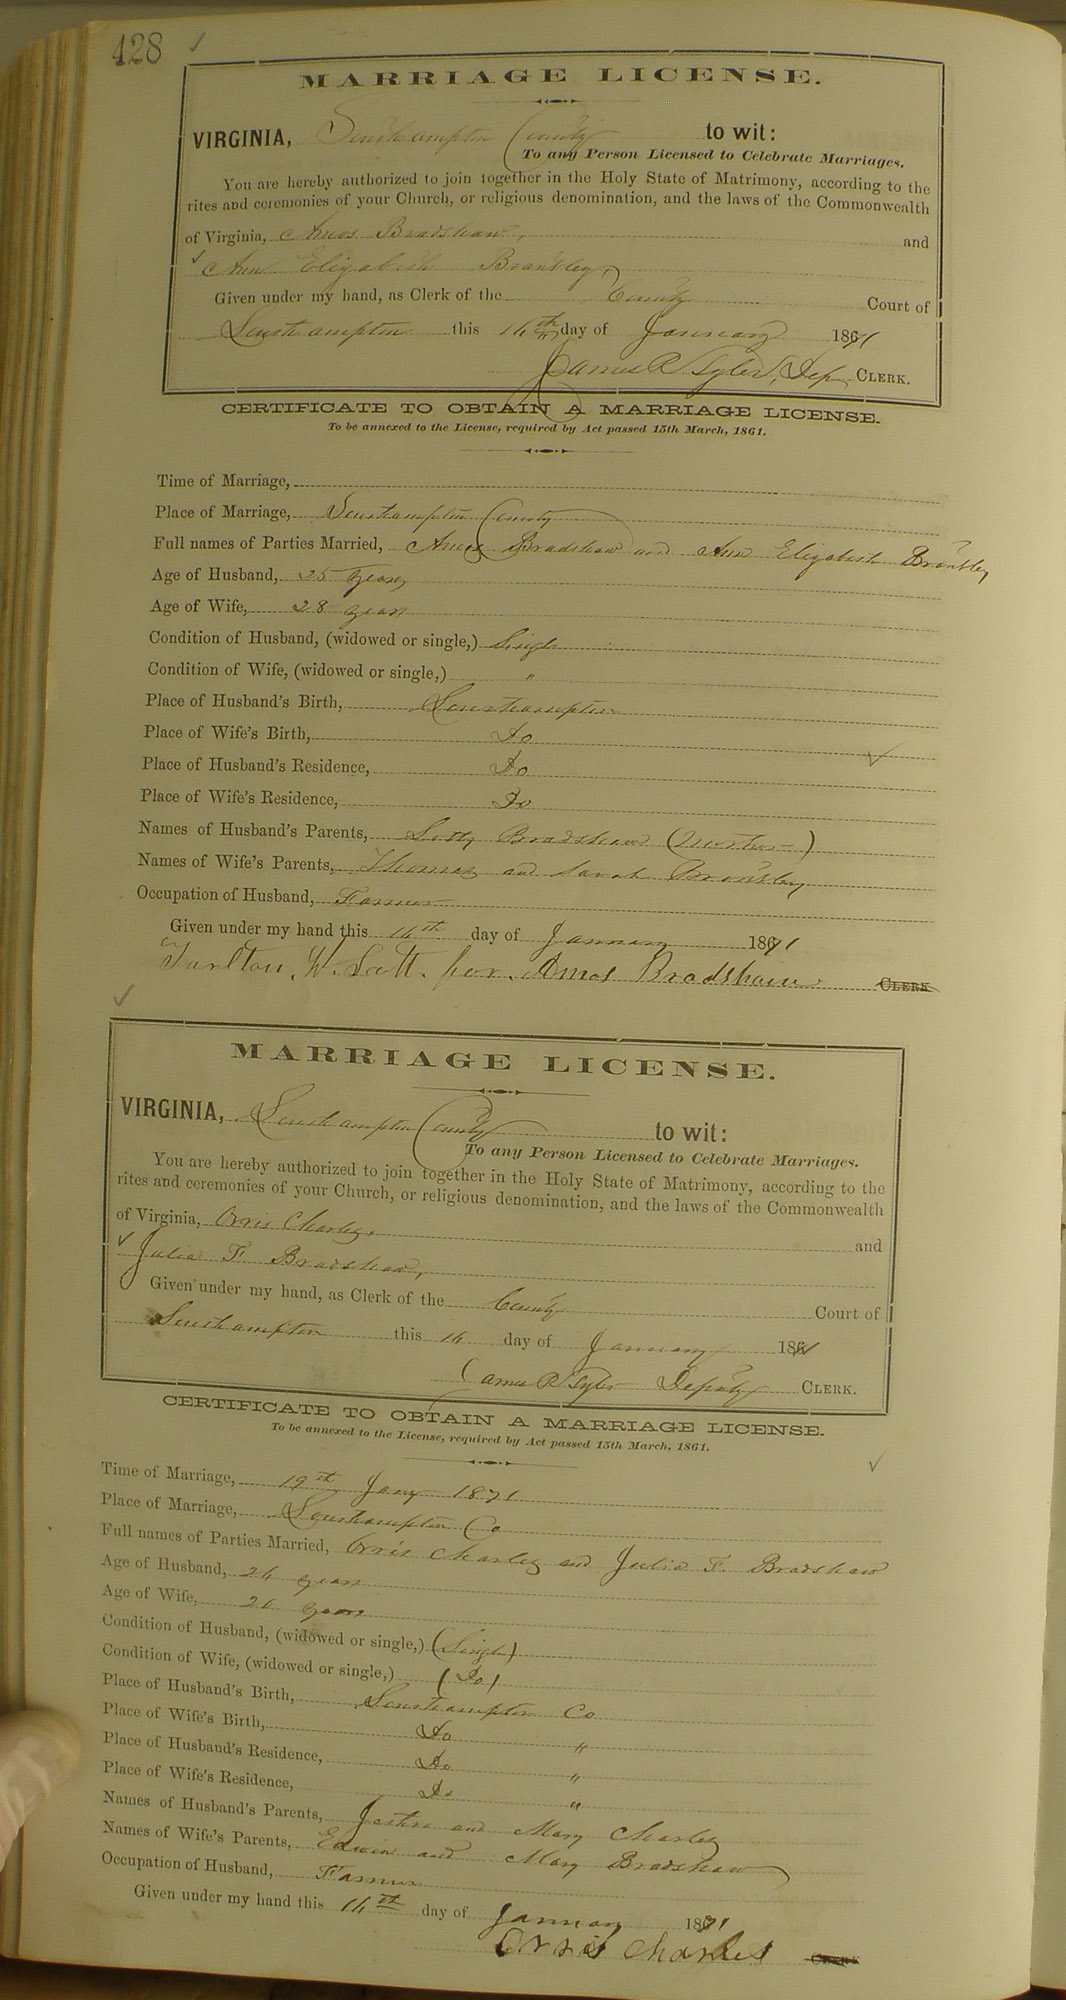 428
MARRIAGE LICENSE.
VIRGINIA, Southampton County to wit:
To any Person Licensed to Celebrate Marriages.
You are hereby authorized to join together in the Holy State of Matrimony, according to the
rites and ceremonies of your Church, or religious denomination, and the laws of the Commonwealth
of Virginia, Amos Bradshaw, and
Ann Elizabeth Brantley,
Given under my hand, as Clerk of the County Court of
Southampton this 16th day of January 1871
James R Tyler, Dep CLERK.
CERTIFICATE TO OBTAIN A MARRIAGE LICENSE.
To be annexed to the License, required by Act passed 15th March, 1861.
Time of Marriage,
Place of Marriage, Southampton County
Full names of Parties Married, Amos Bradshaw and Ann Elizabeth Brantley
Age of Husband, 25 years
Age of Wife, 28 years
Condition of Husband, (widowed or single,) Single
Condition of Wife, (widowed or single,) "
Place of Husband's Birth, Southampton
Place of Wife's Birth, Do
Place of Husband's Residence, Do
Place of Wife's Residence, Do
Names of Husband's Parents, Lotty Bradshaw (Mother)
Names of Wife's Parents, Thomas and Sarah Brantley
Occupation of Husband, Farmer
Given under my hand this 16th day of January 1871
Tarlton W. Scott. for. Amos Bradshaw CLERK
MARRIAGE LICENSE.
VIRGINIA, Southampton County to wit:
To any Person Licensed to Celebrate Marriages.
You are hereby authorized to join together in the Holy State of Matrimony, according to the
rites and ceremonies of your Church, or religious denomination, and the laws of the Commonwealth
of Virginia, Orris Charley, and
Julia F. Bradshaw,
Given under my hand, as Clerk of the County Court of
Southampton this 16 day of January 1871
James R Tyler Deputy CLERK.
CERTIFICATE TO OBTAIN A MARRIAGE LICENSE.
To be annexed to the License, required by Act passed 15th March, 1861.
Time of Marriage, 19th Jany 1871
Place of Marriage, Southampton Co
Full names of Parties Married, Orris Charley and Julia F. Bradshaw
Age of Husband, 26 years
Age of Wife, 20 years
Condition of Husband, (widowed or single,) (Single)
Condition of Wife, (widowed or single,) (Do)
Place of Husband's Birth, Southampton Co
Place of Wife's Birth, Do "
Place of Husband's Residence, Do "
Place of Wife's Residence, Do "
Names of Husband's Parents, and Mary Charley
Names of Wife's Parents, Edwin and Mary Bradshaw
Occupation of Husband, Farmer
Given under my hand this 16th day of January 1871
Orris Charles CLERK